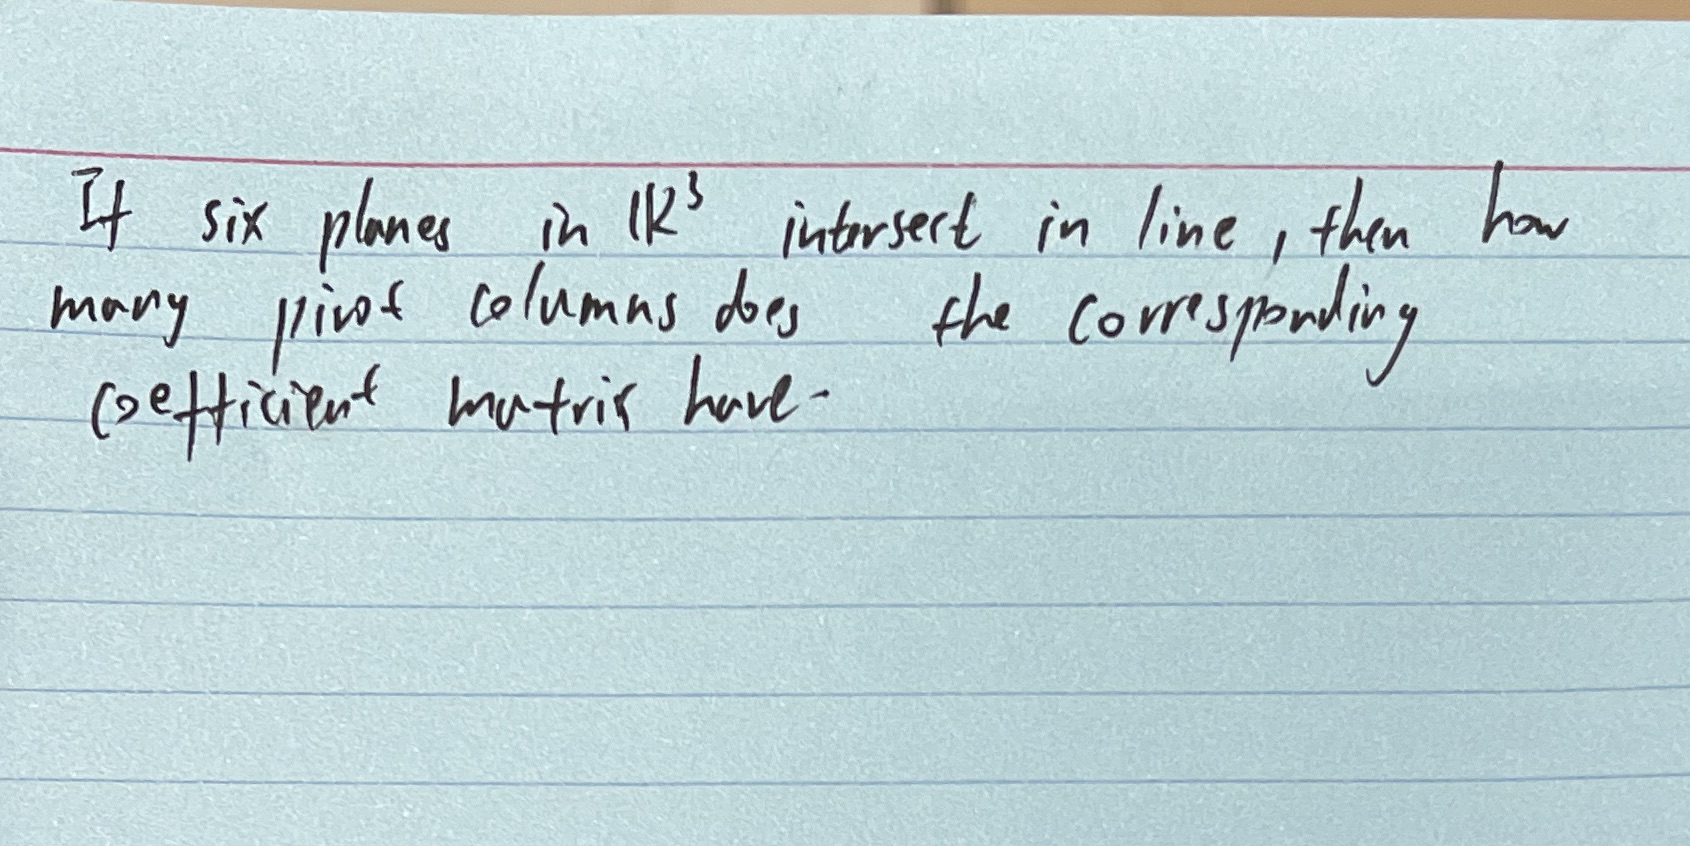 If six planes in ℝ³ intersect in line, then how
many pivot columns does the corresponding
coefficient matrix have.